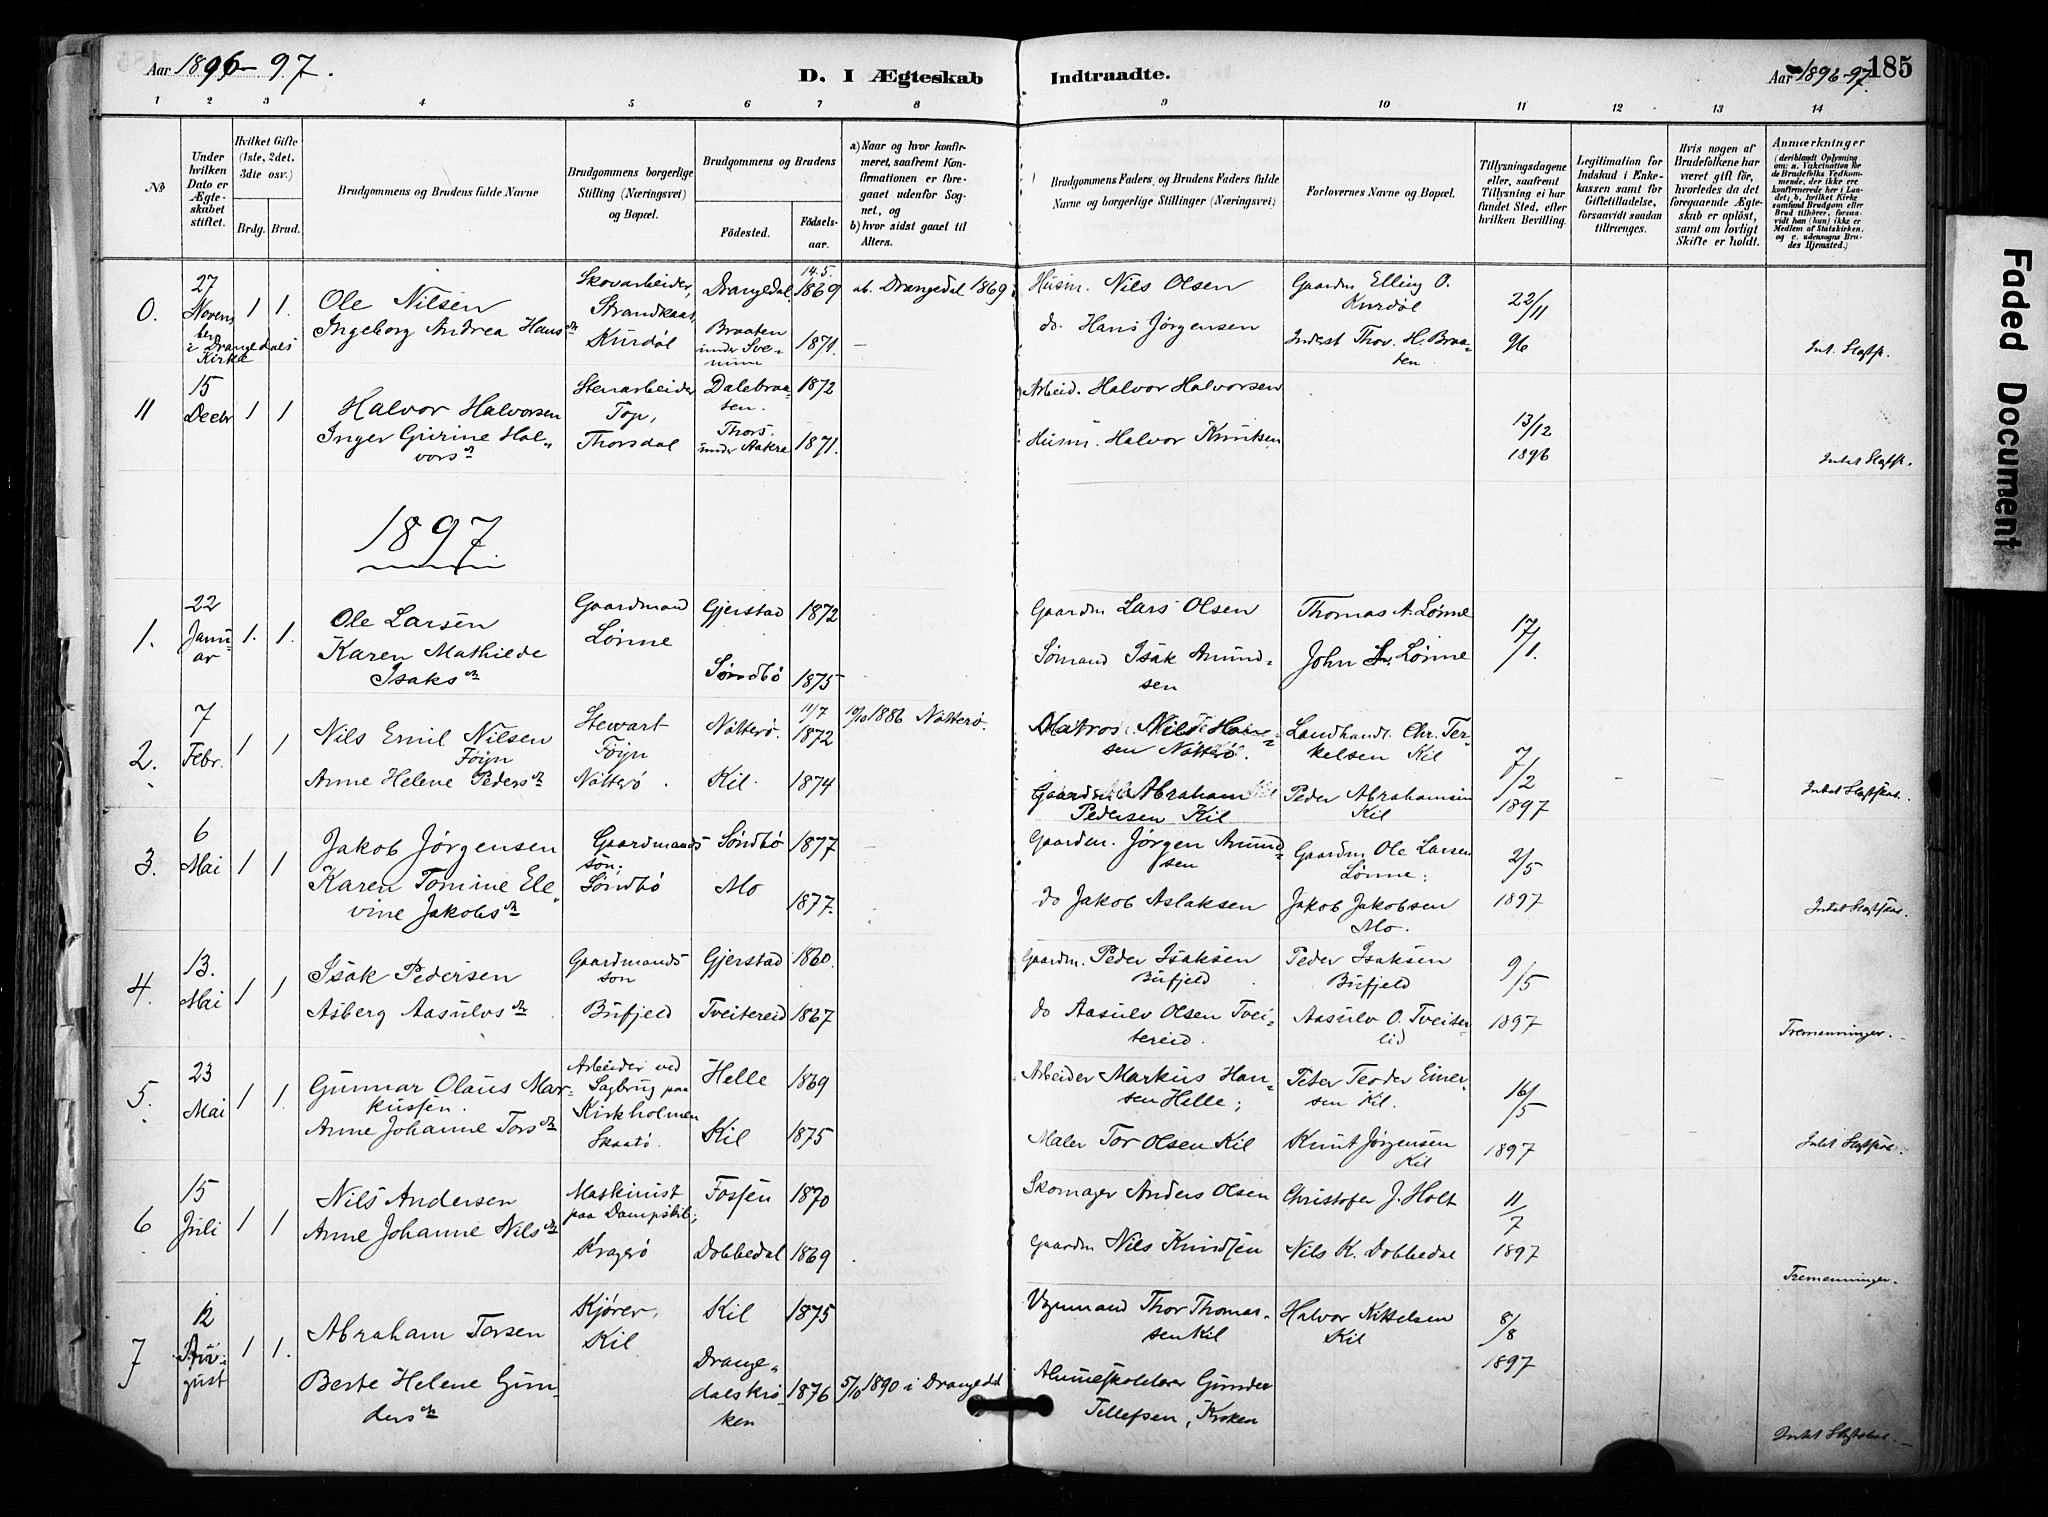 Aar 1896-97.
D. I Ægteskab Indtraadte.
Aar 1896-97.
185
1 2 3 4 5 6 7 8 9 10 11 12 13 14
No
Under hvilken Dato er Ægteskabet stiftet.
Hvilket Gifte (1ste, 2det, 3die osv.)
Brdg. Brud.
Brudgommens og Brudens fulde Navne
Brudgommens borgerlige Stilling (Næringsvei) og Bopæl.
Brudgommens og Brudens
Födested.
Födselsaar.
a) Naar og hvor konfirmeret, saafremt Konfirmationen er foregaaet udenfor Sognet, og
b) hvor sidst gaaet til Alters.
Brudgommens Faders, og Brudens Faders fulde Navne og borgerlige Stillinger (Næringsvei)
Forlovernes Navne og Bopæl.
Tillysningsdagene eller, saafremt Tillysning ei har fundet Sted, efter hvilken Bevilling.
Legitimation for Indskud i Enkekassen samt for Giftetilladelse, forsaavidt saadan tiltrænges.
Hvis nogen af Brudefolkene har været gift för, hvorledes da det foregaaende Ægteskab er oplöst, samt om lovligt Skifte er holdt.
Anmærkninger
(deriblandt Oplysning om: a. Vakcination for de Brudefolks Vedkommende, der ikke ere konfirmerede her i Landet; b. hvilket Kirkesamfund Brudgom eller Brud tilhörer, forsaavidt han (hun) ikke er Medlem af Statskirken, og c. udensogns Brudes Hjemsted.)
0. 27 November i Drangedals Kirke 1 1.
Ole Nilsen
Ingeborg Andrea Hansd.
Skovarbeider, Strandkaat, Kurdöl
Drangedal 14.5. 1869 ab. Drangedal 1869
Braaten under Svenum 1871. —
Husm. Nils Olsen
do. Hans Jörgensen
Gaardm Elling O. Kurdöl
Inderst Thov. H. Braaten
22/11 96
Int. Slagtsk.
11 15 Decbr 1 1
Halvor Halvorsen
Inger Gurine Halvorsd.
Stenarbeider Top, Thorsdal
Dalebraaten. 1872
Thors. under Aakre 1871.
Arbeid. Halvor Halvorsen
Husm. Halvor Knutsen
13/12 1896
Intet Slagtsk.
1897.
1. 22 Januar 1. 1.
Ole Larsen
Karen Mathilde Isaksd.
Gaardmand Lönne
Gjerstad 1872
Söndbö 1875
Gaardm Lars Olsen
Sömand Isak Amundsen
Thomas A. Lönne
John L. Lönne
17/1.
2. 7 Febr. 1 1
Nils Emil Nilsen Föyn
Anne Helene Pedersd.
Stewart Föyn Nötterö.
Nötterö. 11/7 1872 10/10 1886 Nötterö.
Kil. 1874
Matros Nils Hansen Nötterö.
Gaardm Abraham Pedersen Kil
Landhandl. Chr. Terkelsen Kil
Peder Abrahamsen Kil
7/2 1897
Intet Slagtskab.
3. 6 Mai 1 1
Jakob Jörgensen
Karen Tomine Elevine Jakobsd.
Gaardmandssön; Söndbö
Söndbö 1877
Mo 1877.
Gaardm. Jörgen Amundsen
do Jakob Aslaksen
Gaardm Ole Larsen Lönne;
Jakob Jakobsen Mo.
2/5 1897
Intet Slagtskab.
4. 13. Mai 1 1
Isak Pedersen
Asberg Aasulvsd.
Gaardmandsson Bufjeld
Gjerstad 1860.
Tveitereid 1867
Gaardm. Peder Isaksen Bufjeld
do Aasulv Olsen Tveitereid.
Peder Isaksen Bufjeld
Aasulv O. Tveitereid
9/5 1897
Tremenninger.
5. 23 Mai 1 1.
Gunnar Olaus Markussen.
Anne Johanne Torsd.
Arbeider ved Sagbrug paa Kirkholmen Skaatö.
Helle 1869
Kil 1875
Arbeider Markus Hansen Helle;
Maler Tor Olsen Kil
Peter Teodor Einersen Kil.
Knut Jörgensen Kil
16/5 1897
Intet Slagtskab.
6 15 Juli 1 1
Nils Andersen
Anne Johanne Nilsd.
Maskinist paa Dampskib; Kragerö
Fossen 1870
Dobbedal 1869
Skomager Anders Olsen
Gaardm Nils Knudsen
Christofer J. Holt
Nils K. Dobbedal
11/7 1897
Tremenninger.
7 12 August 1 1.
Abraham Torsen
Berte Helene Gundersd.
Kjörer, Kil
Kil 1875
Drangedalskröken 1876 5/10 1890 i Drangedal
Vognmand Thor Thomassen Kil
Almueskolelærer Gunder Tellefsen, Kroken
Halvor Kittelsen Kil
8/8 1897
Intet Slagtskab.
Faded Document